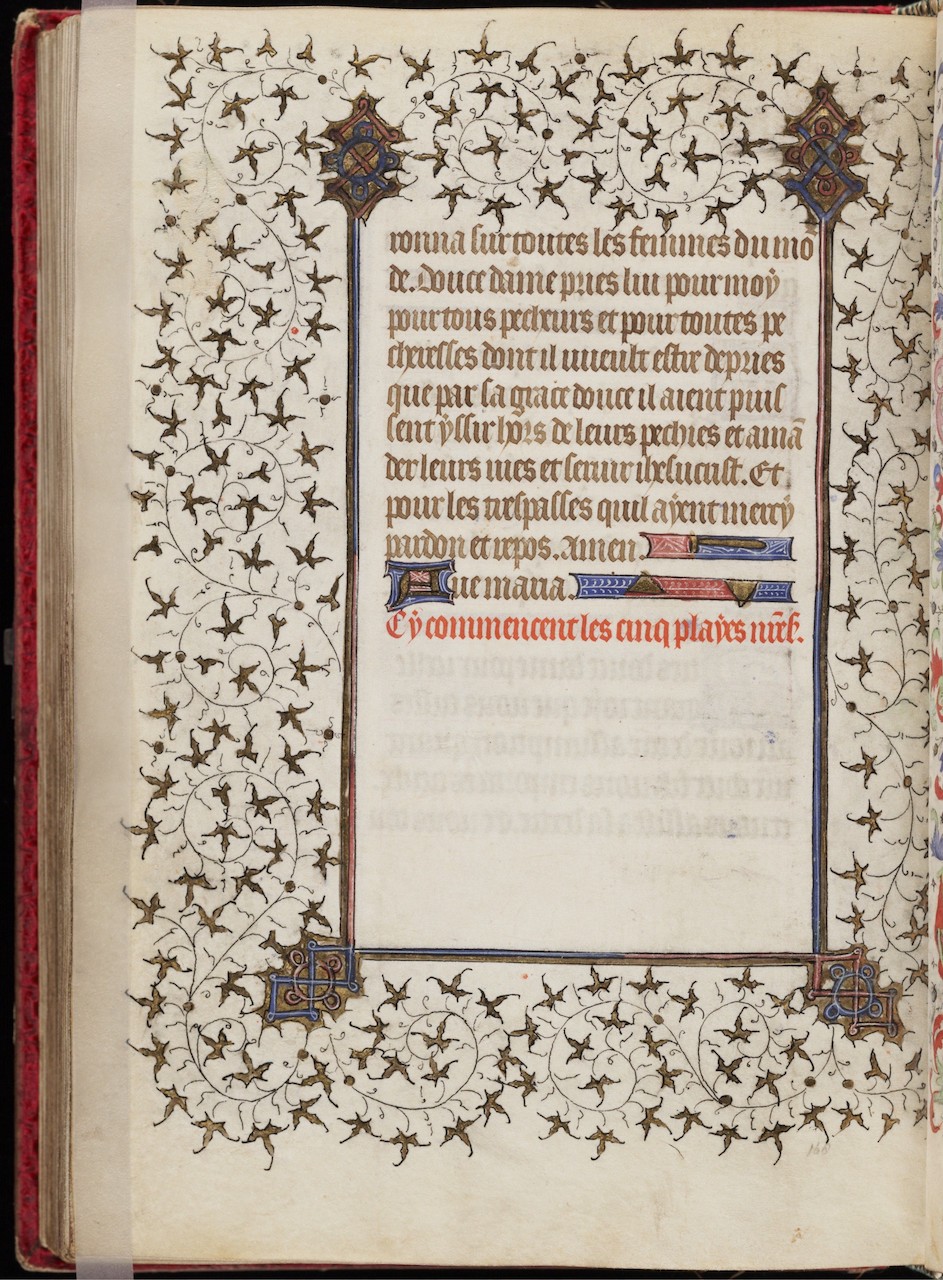 ronna sur toutes les femmes du mō
de. Douce dame pries lui pour moÿ
pour tous pecheurs et pour toutes pe
cheresses dont il vueult estre depries
que par sa grace douce il aient puis
sent ÿssir hors de leurs pechies et amā
der leurs vies et seruir ihesucrist. Et
pour les trespasses quil aÿent mercÿ
pardon et repos. Amen.
Aue maria.
Cÿ commencent les cinq plaÿes